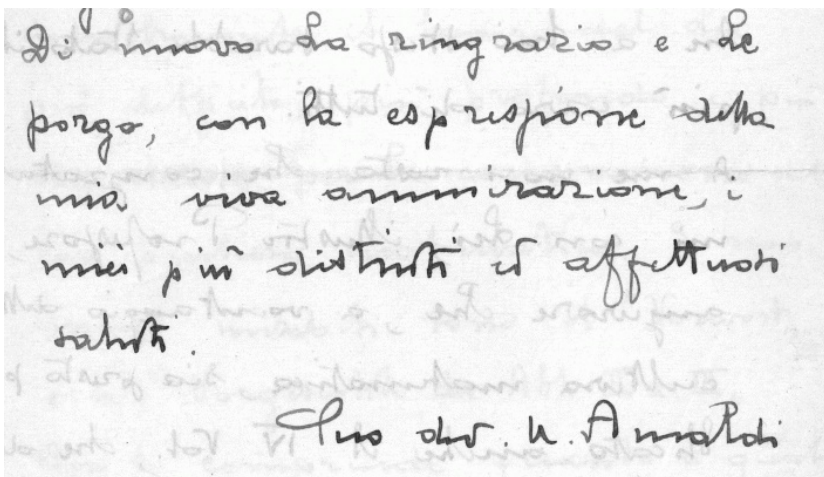 Di nuovo La ringrazio e Le
porgo, con la espressione della
mia viva ammirazione, i
miei più distinti ed affettuosi
saluti.
Suo dev. U. Amaldi